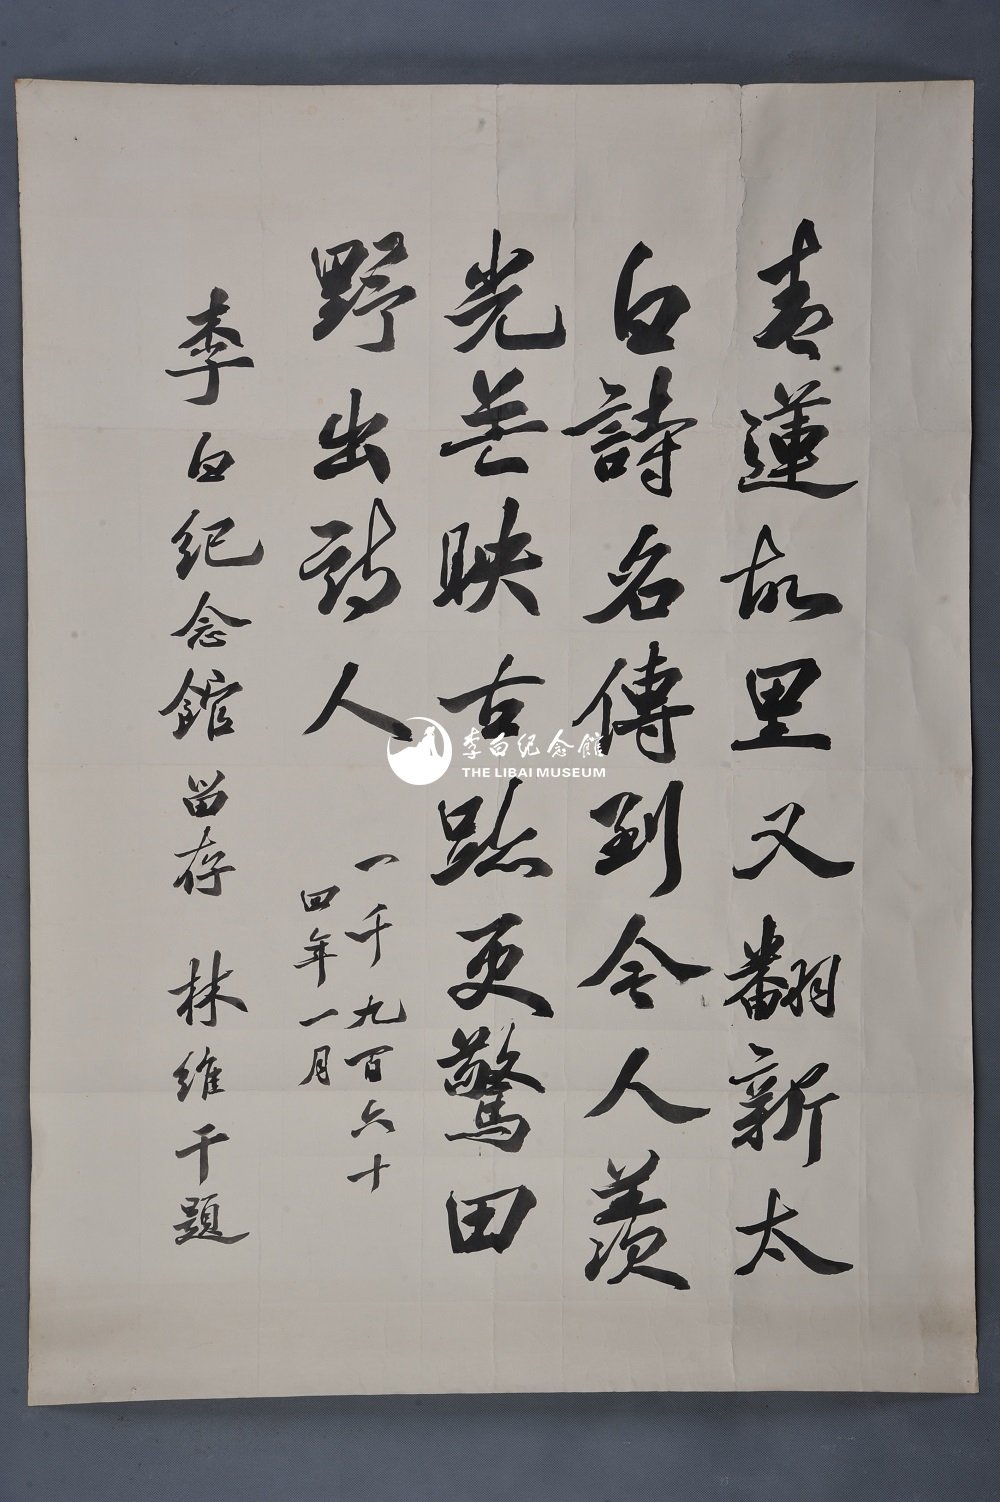 青蓮故里又翻新太
白詩名傳到令人羨
光芒映古跡更驚田
野出詩人
一千九百六十
四年一月
李白纪念館留存 林維干題
李白纪念館
THE LIBAI MUSEUM